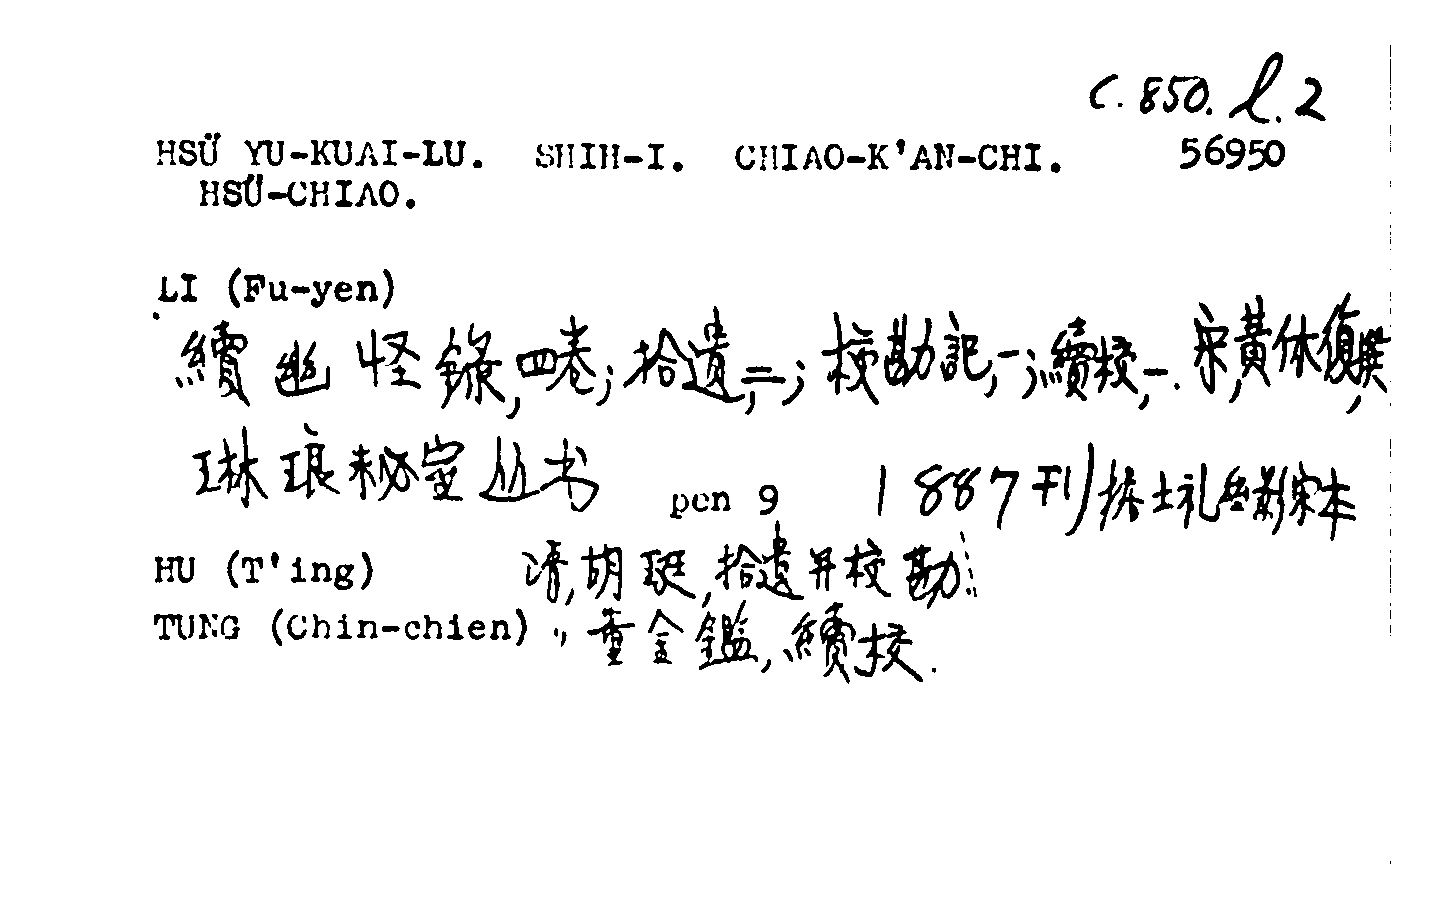 C. 850. l. 2
HSÜ YU-KUAI-LU. SHIH-I. CHIAO-K'AN-CHI. 56950
HSÜ-CHIAO.
LI (Fu-yen)
續幽怪錄,四卷;拾遺,二;校勘記,一;續校,一.宋,黃休復撰,
琳琅秘室丛书 pen 9 1887刊 据士礼居影宋本
HU (T'ing) 清,胡珽,拾遺并校勘;
TUNG (Chin-chien) 〃 董金鑑,續校.